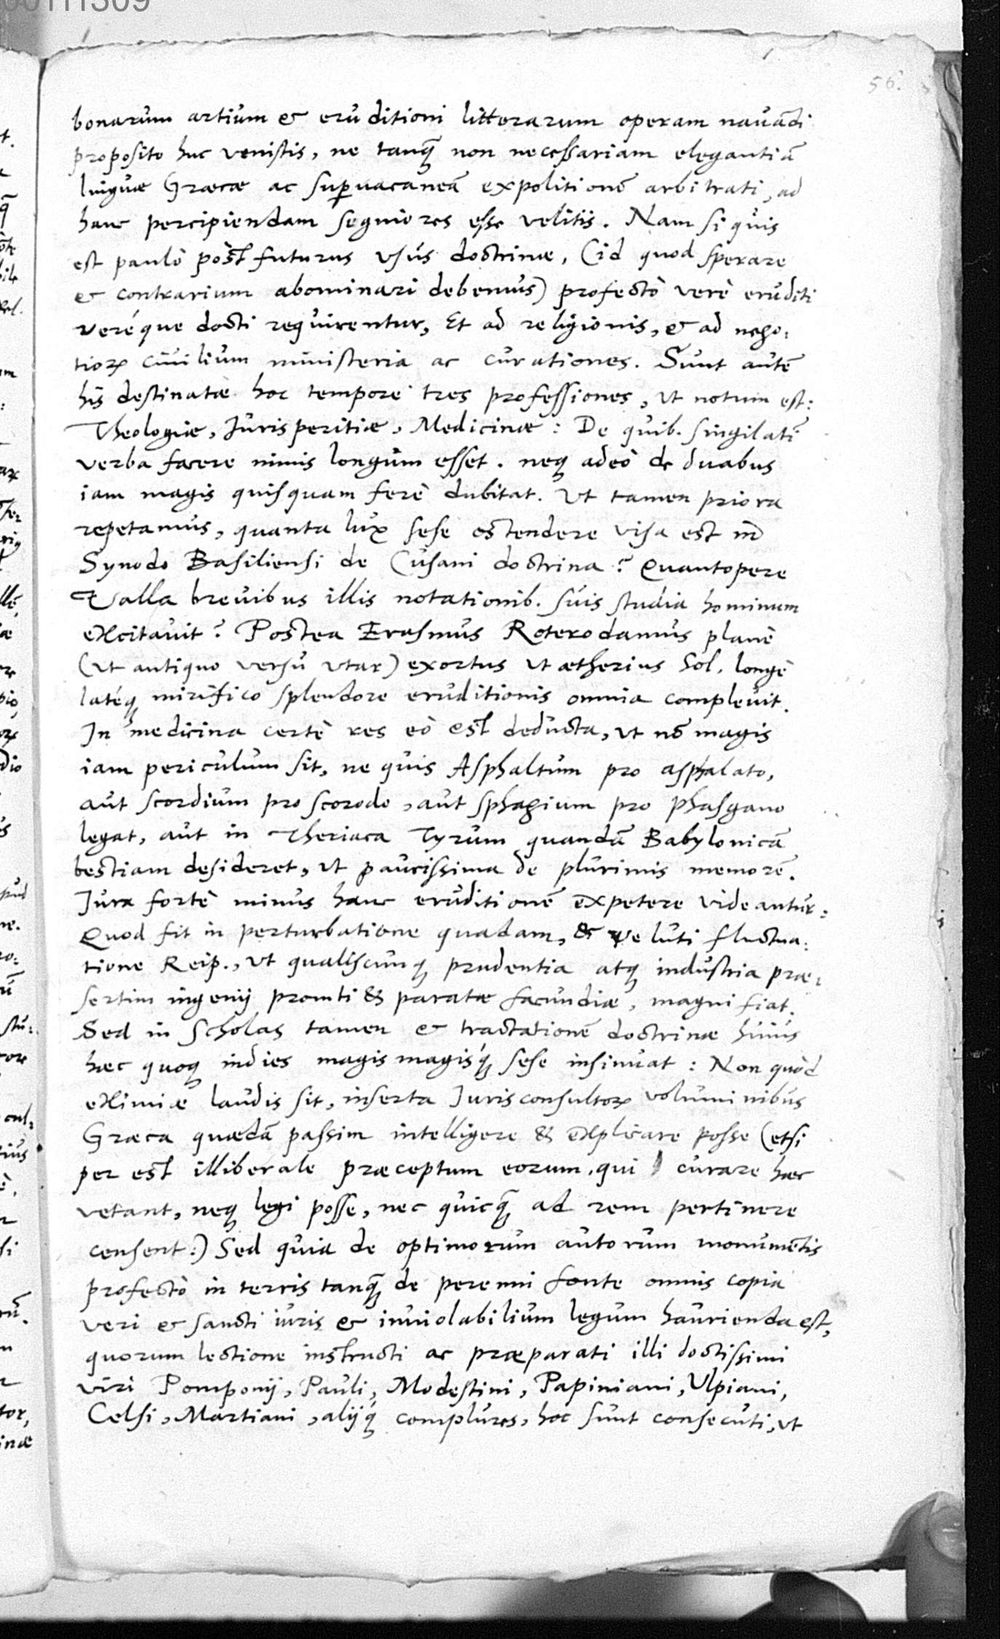 00111309
56.
bonarum artium & eruditioni litterarum operam nauādi
proposito huc venistis, ne tanq̃ non necessariam elegantiā
linguæ Græcæ ac supuacaneā expolitionē arbitrati, ad
hanc percipiendam segniores esse velitis. Nam si quis
est paulò pòst futurus vsus doctrinæ, (id quod sperare
& contrarium abominari debemus) profectò verè eruditi
veréque docti requirentur, Et ad religionis, & ad nego:
tioꝝ ciuilium ministeria ac curationes. Sunt autē
his destinatæ hoc tempore tres professiones, ut notum est:
Theologiæ, Iurisperitiæ, Medicinæ: De quib. singilati
verba facere nimis longum esset. neq; adeò de duabus
iam magis quisquam ferè dubitat. Ut tamen priora
repetamus, quanta lux sese ostendere visa est in
Synodo Basiliensi de Cusani doctrina? Quantopere
Valla breuibus illis notationib. suis studia hominum
excitauit? Postea Erasmus Roterodamus planè
(ut antiquo versu utar) exortus ut ætherius Sol, longè
latéq; mirifico splendore eruditionis omnia compleuit.
In medicina certè res eò est deducta, ut nō magis
iam periculum sit, ne quis Asphaltum pro asphalato,
aut scordium pro scorodo, aut sphagium pro phasgano
legat, aut in Theriaca Tyrum quandā Babylonicā
bestiam desideret, ut paucissima de plurimis memorē.
Iura fortè minus hanc eruditionē expetere videantur:
Quod fit in perturbatione quadam, & veluti fluctua:
tione Reip., ut qualiscunq; prudentia atq; industria præ:
sertim ingenij promti & paratæ facundiæ, magni fiat.
Sed in scholas tamen & tractationē doctrinæ huius
hæc quoq; indies magis magisq́; sese insinuat: Non quòd
eximiæ laudis sit, inserta Iurisconsultoꝝ voluminibus
Græca quædā passim intelligere & explicare posse (etsi
per est illiberale præceptum eorum, qui curare hæc
vetant, neq; legi posse, nec quicq̃ ad rem pertinere
censent:) Sed quia de optimorum autorum monumētis
profectò in terris tanq̃ de perenni fonte omnis copia
veri & sancti iuris & inuiolabilium legum haurienda est,
quorum lectione instructi ac præparati illi doctissimi
viri Pomponij, Pauli, Modestini, Papiniani, Ulpiani,
Celsi, Martiani, alijq́; complures, hoc sunt consecuti, ut